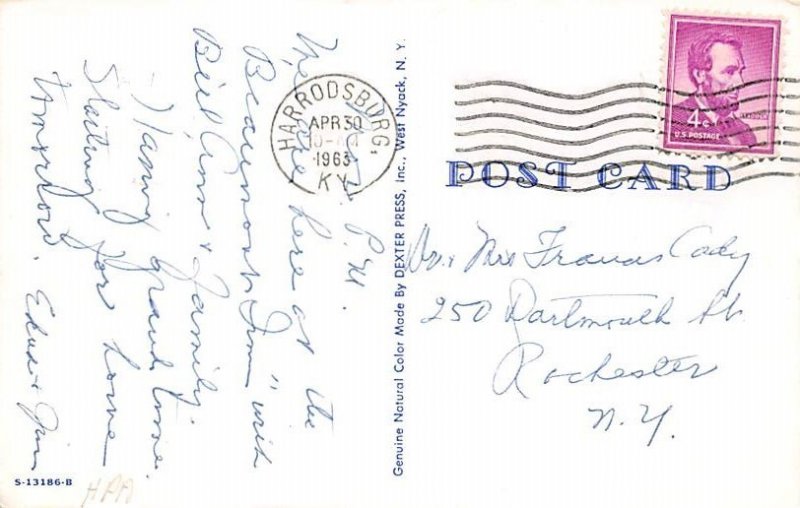 P.M.
We are here at the
Beaumont Inn" with
Bill, Ann & family.
Having grand time.
Starting for home
tomorrow.
Edna & Jim
HARRODSBURG,
APR 30
1963
KY.
Genuine Natural Color Made By DEXTER PRESS, Inc., West Nyack, N. Y.
4¢
U.S. POSTAGE
POST CARD
Dr. & Mrs Francis Cady
250 Dartmouth St.
Rochester
N.Y.
S-13186-B